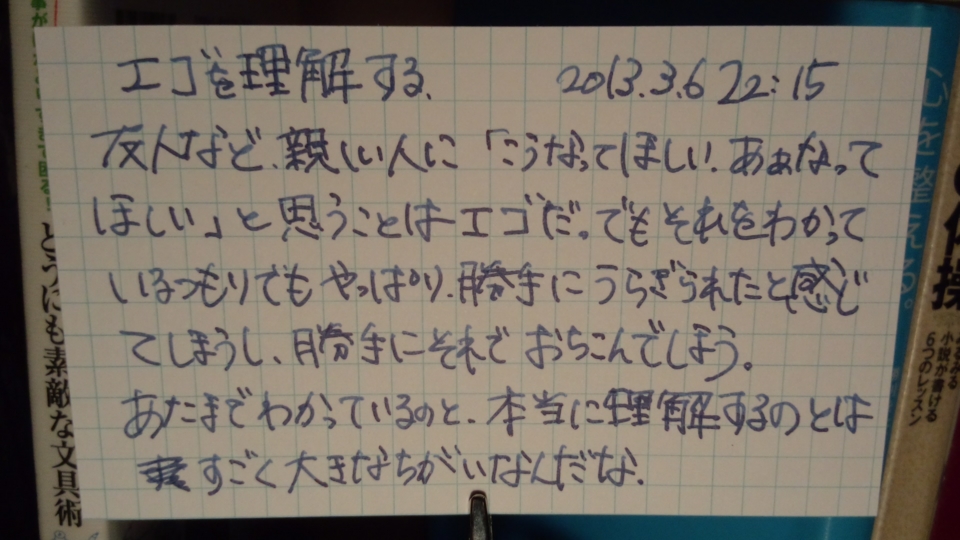 エゴを理解する. 2013.3.6 22:15
友人など、親しい人に「こうなってほしい!あぁなって
ほしい」と思うことはエゴだ。でもそれをわかって
いるつもりでもやっぱり、勝手にうらぎられたと感じ
てしまうし、勝手にそれでおちこんでしまう。
あたまでわかっているのと、本当に理解するのとは
すごく大きなちがいなんだな.
とつにも素敵な文具術
心を整える。
体操
みるみる
小説が書ける
6つのレッスン